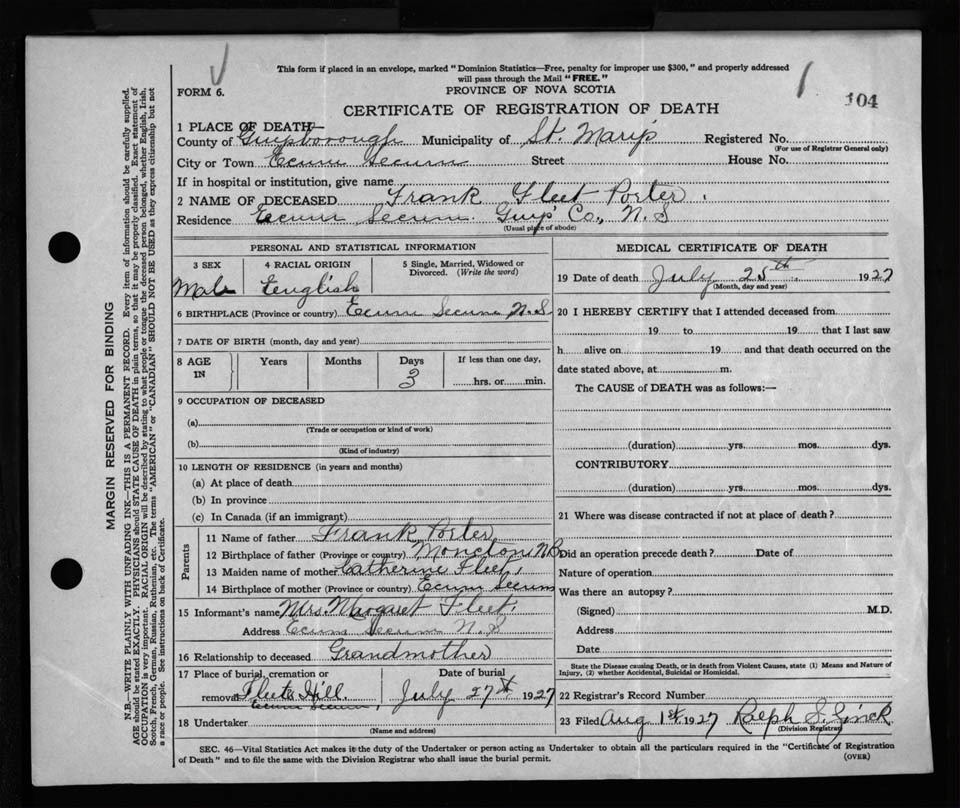 This form if placed in an envelope, marked "Dominion Statistics—Free, penalty for improper use $300," and properly addressed
will pass through the Mail "FREE."
FORM 6.
PROVINCE OF NOVA SCOTIA
104
CERTIFICATE OF REGISTRATION OF DEATH
1 PLACE OF DEATH
County of Guysborough Municipality of St. Mary's Registered No.
(For use of Registrar General only)
City or Town Ecum Secum Street House No.
If in hospital or institution, give name
2 NAME OF DECEASED Frank Fleet Porter
Residence Ecum Secum Guys' Co., N.S
(Usual place of abode)
MARGIN RESERVED FOR BINDING
N.B.—WRITE PLAINLY WITH UNFADING INK—THIS IS A PERMANENT RECORD. Every item of information should be carefully supplied.
AGE should be stated EXACTLY. PHYSICIANS should STATE CAUSE OF DEATH in plain terms, so that it may be properly classified. Exact statement of
OCCUPATION is very important. RACIAL ORIGIN will be described by stating to what people or tongue the deceased person belonged, whether English, Irish,
Scotch, French, German, Russian, Ruthenian, etc. The terms "AMERICAN" or "CANADIAN" SHOULD NOT BE USED as they express citizenship but not
a race or people. See instructions on back of Certificate.
PERSONAL AND STATISTICAL INFORMATION
3 SEX 4 RACIAL ORIGIN 5 Single, Married, Widowed or
Divorced. (Write the word)
Male English
6 BIRTHPLACE (Province or country) Ecum Secum N.S.
7 DATE OF BIRTH (month, day and year)
8 AGE IN Years Months Days If less than one day,
3 hrs. or min.
9 OCCUPATION OF DECEASED
(a)
(Trade or occupation or kind of work)
(b)
(Kind of industry)
10 LENGTH OF RESIDENCE (in years and months)
(a) At place of death
(b) In province
(c) In Canada (if an immigrant)
Parents
11 Name of father Frank Porter
12 Birthplace of father (Province or country) Moncton N.B.
13 Maiden name of mother Catherine Fleet
14 Birthplace of mother (Province or country) Ecum Secum
15 Informant's name Mrs Margaret Fleet
Address Ecum Secum N.S
16 Relationship to deceased Grandmother
17 Place of burial, cremation or Date of burial
removal Fleets Hill July 27th 1927
Ecum Secum
18 Undertaker
(Name and address)
MEDICAL CERTIFICATE OF DEATH
19 Date of death July 25th 1927
(Month, day and year)
20 I HEREBY CERTIFY that I attended deceased from
19 to 19 that I last saw
h alive on 19 and that death occurred on the
date stated above, at m.
The CAUSE of DEATH was as follows:—
(duration) yrs. mos. dys.
CONTRIBUTORY
(duration) yrs. mos. dys.
21 Where was disease contracted if not at place of death?
Did an operation precede death? Date of
Nature of operation
Was there an autopsy?
(Signed) M.D.
Address
Date
State the Disease causing Death, or in death from Violent Causes, state (1) Means and Nature of
Injury, (2) whether Accidental, Suicidal or Homicidal.
22 Registrar's Record Number
23 Filed Aug 1st 1927 Ralph S.
(Division Registrar)
SEC. 46—Vital Statistics Act makes it the duty of the Undertaker or person acting as Undertaker to obtain all the particulars required in the "Certificate of Registration
of Death" and to file the same with the Division Registrar who shall issue the burial permit.
(OVER)